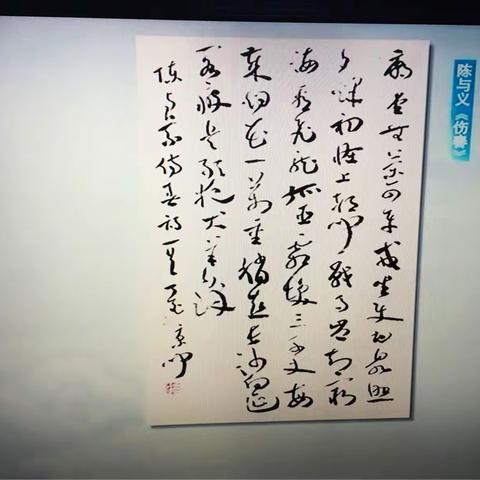 陈与义《伤春》
庙堂无策可平戎坐使甘泉照
夕烽初怪上都闻战马岂知穷
海看飞龙孤臣霜发三千丈每
岁烟花一万重稍喜长沙向延
阁疲兵敢犯犬羊锋
陈与义伤春诗一首